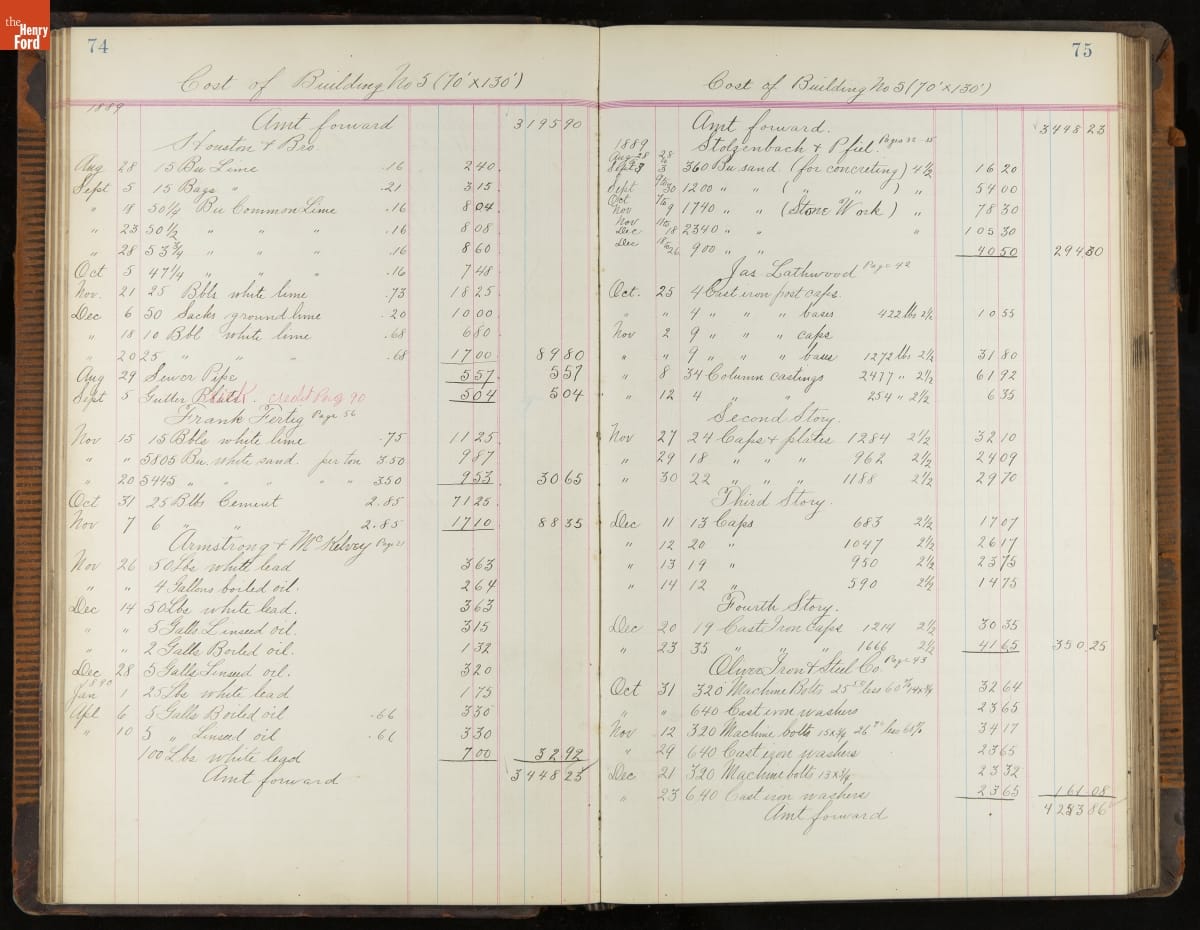 the
Henry
Ford
74
Cost of Building No 5 (70' x 130')
1889
Amt forward 3195 90
Houston & Bro
Aug 28 15 Bu Lime .16 2 40
Sept 5 15 Bags " .21 3 15
" 18 50 1/4 Bu Common Lime .16 8 04
" 23 50 1/2 " " " .16 8 08
" 28 53 3/4 " " " .16 8 60
Oct 5 47 1/4 " " " .16 7 48
Nov. 21 25 Bbls white lime .73 18 25
Dec 6 50 Sacks ground lime .20 10 00
" 18 10 Bbl white lime .68 6 80
" 20 25 " " " .68 17 00 89 80
Aug 29 Sewer Pipe 5 57 5 57
Sept 5 Gutter Block. credit Pag 90 5 04 5 04
Frank Fertig Page 56
Nov 15 15 Bbls white lime .75 11 25
" " 5805 Bu. white sand. per ton 3.50 9 87
" 20 5445 " " " " 350 9 53 30 65
Oct 31 25 Bbls Cement 2.85 71 25
Nov 7 6 " " 2.85 17 10 88 35
Armstrong & McKelvey Page 21
Nov 26 50 Lbs white lead 3 63
" " 4 Gallons boiled oil. 2 64
Dec 14 50 Lbs white lead. 3 63
" " 5 Galls Linseed oil. 3 15
" " 2 Galls Boiled oil. 1 32
Dec 28 5 Galls Linseed oil. 3 20
1890
Jan 1 25 Lbs white lead 1 75
Apl 6 5 Galls Boiled oil .66 3 30
" 10 5 " Linseed oil .66 3 30
100 Lbs white lead 7 00 32 92
Amt forward 3448 23
75
Cost of Building No 5 (70' x 130')
Amt forward. 3448 23
1889 Stolzenbach & Pfiel.
Aug 28 28
Sept 3 3 360 Bu sand (for concreting) 4 1/2 16 20
Sept 30 1200 " " ( " " ) " 54 00
Oct
Nov 9 1740 " " (Stone Work) " 78 30
Nov
Dec 18 2340 " " " 105 30
Dec 26 900 " " 40 50 294 30
Jas. Lathwood Page 42
Oct. 25 4 Cast iron post caps.
" " 4 " " " bases 422 lbs 2 1/2 10 55
Nov 2 9 " " " caps
" " 9 " " " bases 1272 lbs 2 1/2 31 80
" 8 34 Column castings 2477 " 2 1/2 61 92
" 12 4 " " 254 " 2 1/2 6 35
Second Story.
Nov 27 24 Caps & plates 1284 2 1/2 32 10
" 29 18 " " " 962 2 1/2 24 09
" 30 22 " " " 1188 2 1/2 29 70
Third Story.
Dec 11 13 Caps 683 2 1/2 17 07
" 12 20 " 1047 2 1/2 26 17
" 13 19 " 950 2 1/2 23 75
" 14 12 " 590 2 1/2 14 75
Fourth Story.
Dec 20 19 Cast Iron Caps 1214 2 1/2 30 35
" 23 35 " " " 1666 2 1/2 41 65 350 25
Oliver Iron & Steel Co Page 43
Oct 31 320 Machine Bolts 32 64
" " 640 Cast iron washers 23 65
Nov 12 320 Machine bolts 15 x 3/4 34 17
" 29 640 Cast iron washers 23 65
Dec 21 320 Machine bolts 13 x 3/4 23 32
" 23 640 Cast iron washers 23 65 161 08
Amt forward 4253 86